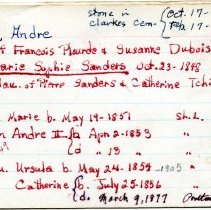 stone in (Oct. 17-
clarkes cem. (Feb 17-
, Andre
f Francois Plourde & Susanne Dubois
arie Sophie Sanders Oct. 23-1848
dau. of Pierre Sanders & Catherine Tch
Marie b. May 19-1851 St. L.
n Andre II b. Apr 2-1853 "
d. " 13 "
u. Ursula b. May 24-1854-1905 "
Catherine b. July 25-1856 "
d. March 9, 1877